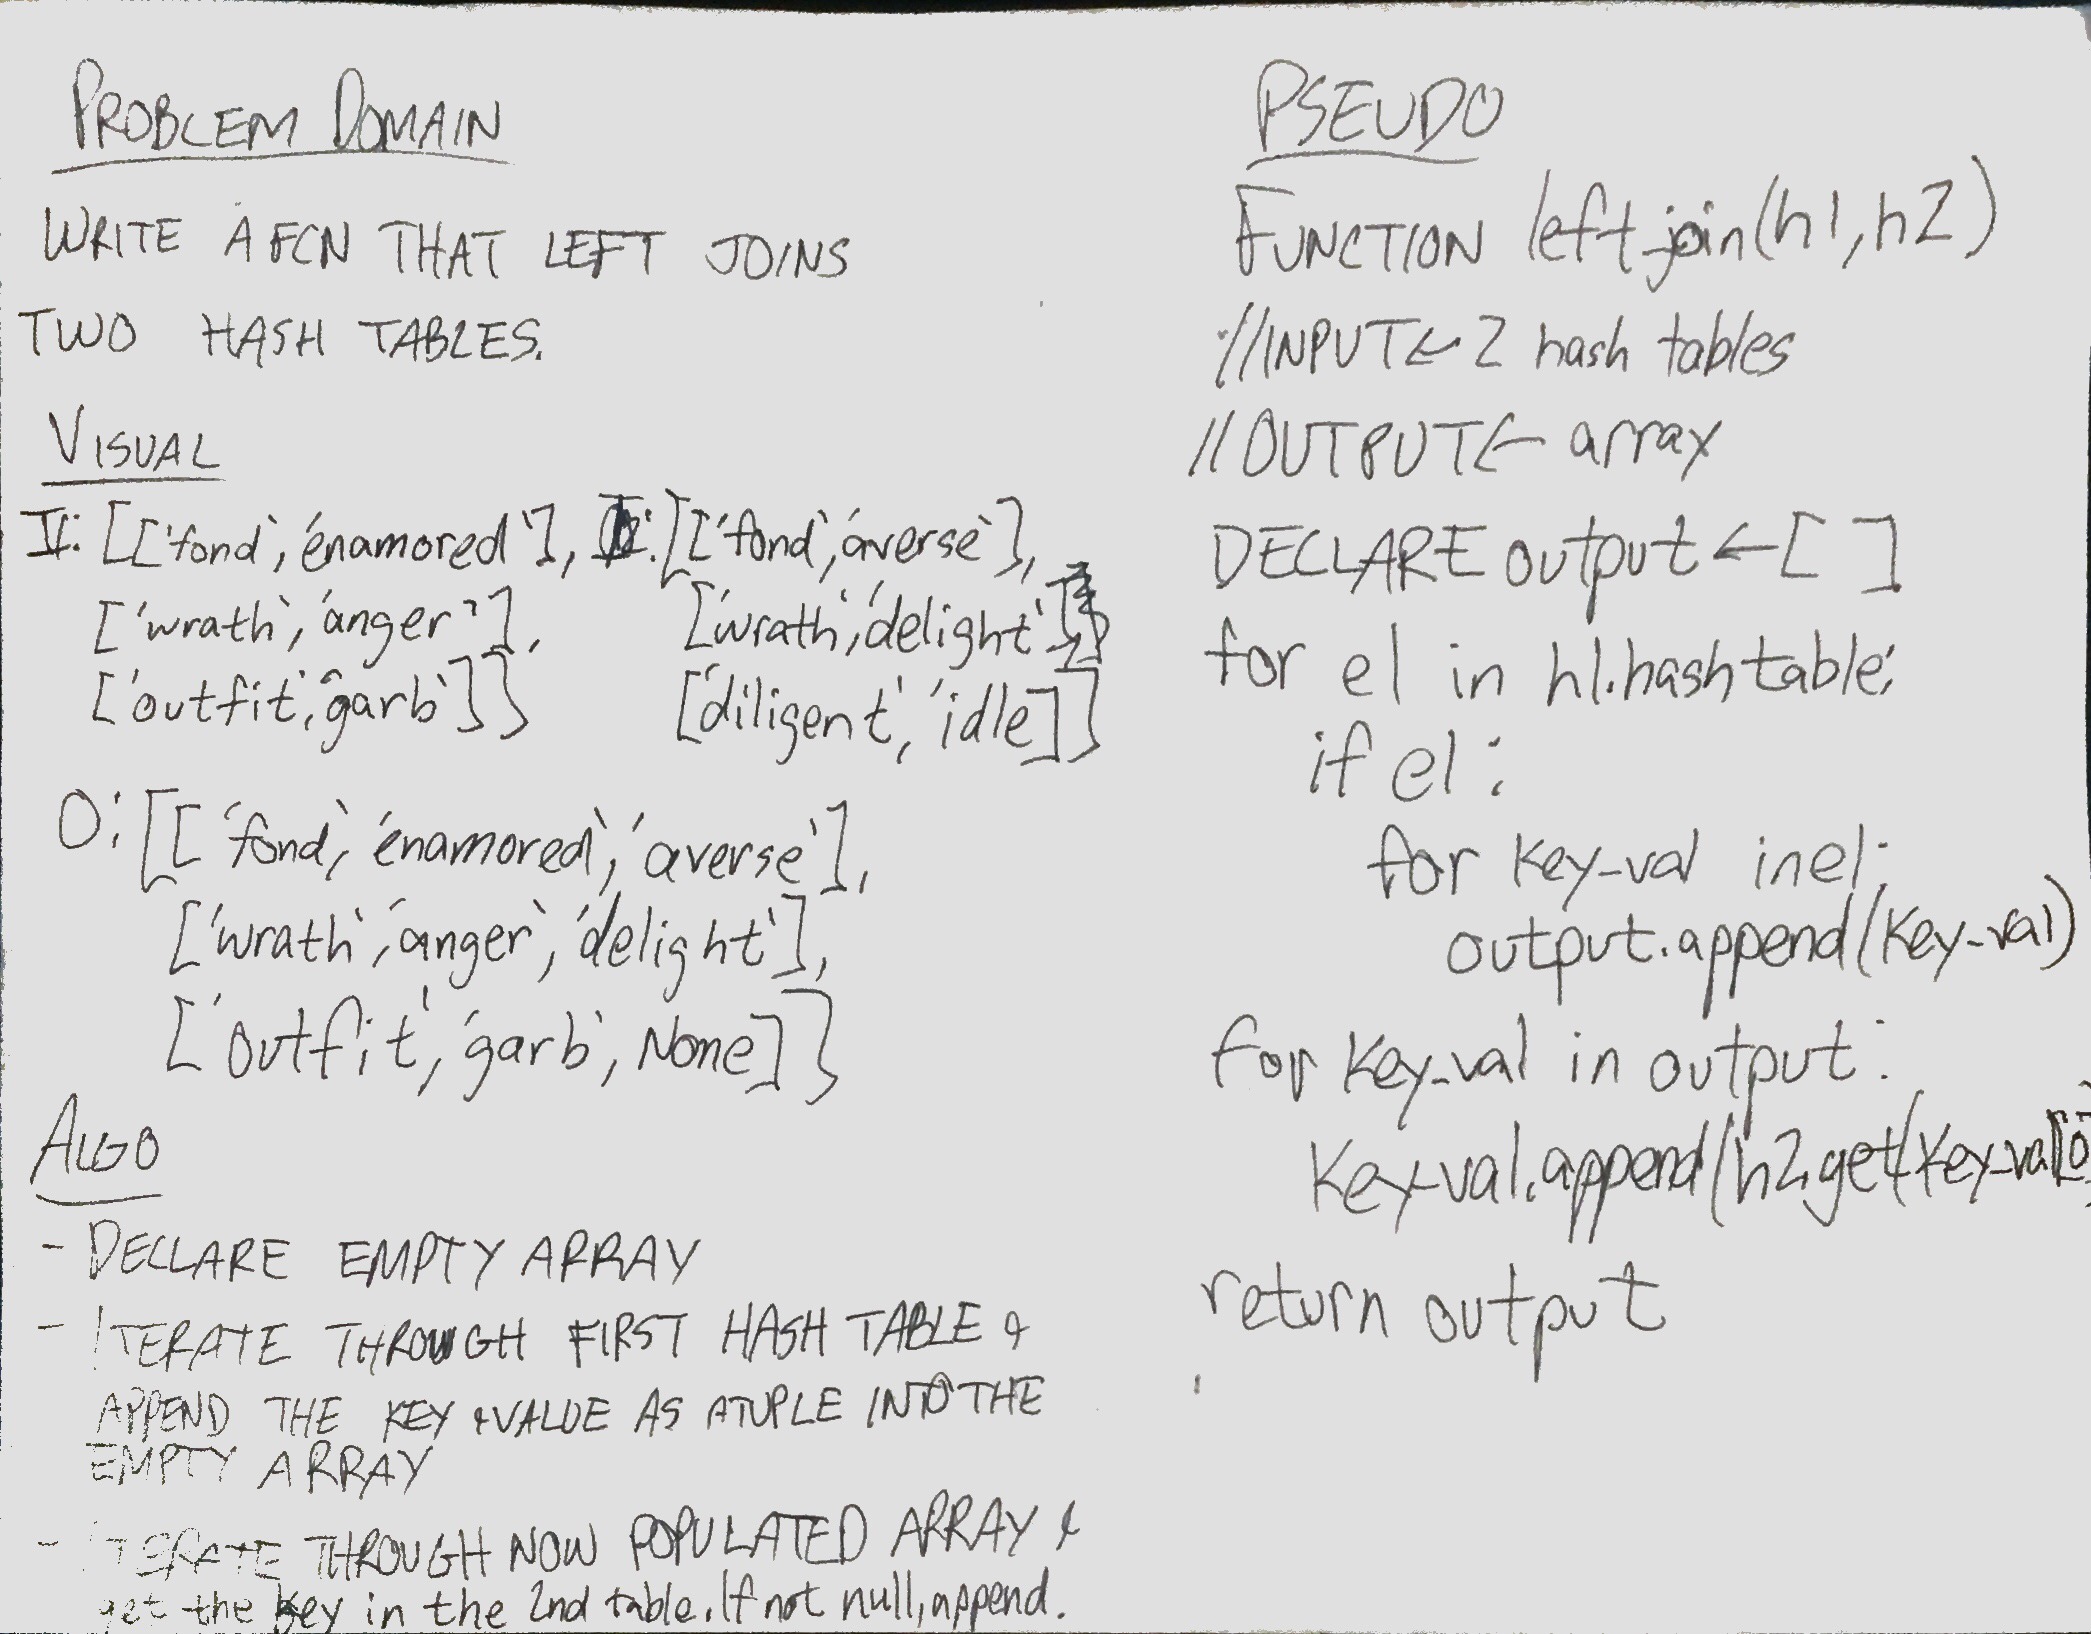 PROBLEM DOMAIN
WRITE A FCN THAT LEFT JOINS
TWO HASH TABLES.
VISUAL
I: [['fond', 'enamored'],
['wrath', 'anger'],
['outfit', 'garb']]
I: [['fond', 'averse'],
['wrath', 'delight'],
['diligent', 'idle]]
O: [['fond', 'enamored', 'averse'],
['wrath', 'anger', 'delight'],
['outfit', 'garb', None]]
ALGO
- DECLARE EMPTY ARRAY
- ITERATE THROUGH FIRST HASH TABLE &
APPEND THE KEY & VALUE AS A TUPLE INTO THE
EMPTY ARRAY
- ITERATE THROUGH NOW POPULATED ARRAY &
get the key in the 2nd table. If not null, append.
PSEUDO
FUNCTION left_join(h1, h2)
//INPUT ← 2 hash tables
//OUTPUT ← array
DECLARE output ← [ ]
for el in h1.hashtable:
if el:
for key-val in el:
output.append(key-val)
for key-val in output:
key-val.append(h2.get(key-val[0]
return output